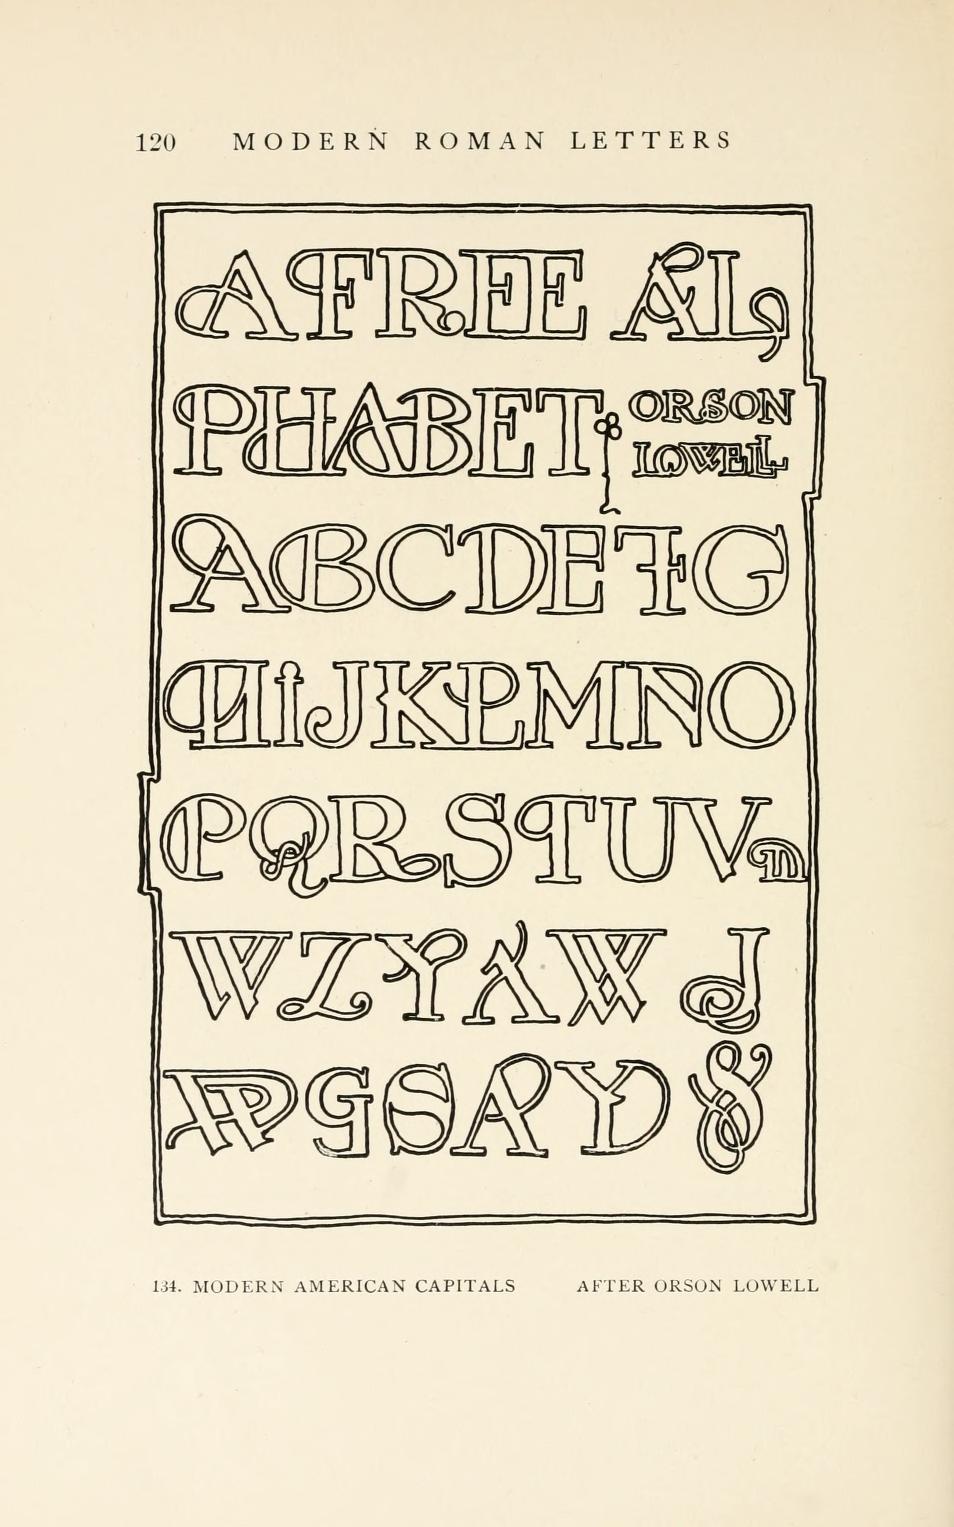 120 MODERN ROMAN LETTERS
A FREE AL
PHABET ORSON
LOWELL
ABCDEFG
HIJKLMNO
PQRSTUV
WZYXW J
APGSAYD &
134. MODERN AMERICAN CAPITALS AFTER ORSON LOWELL